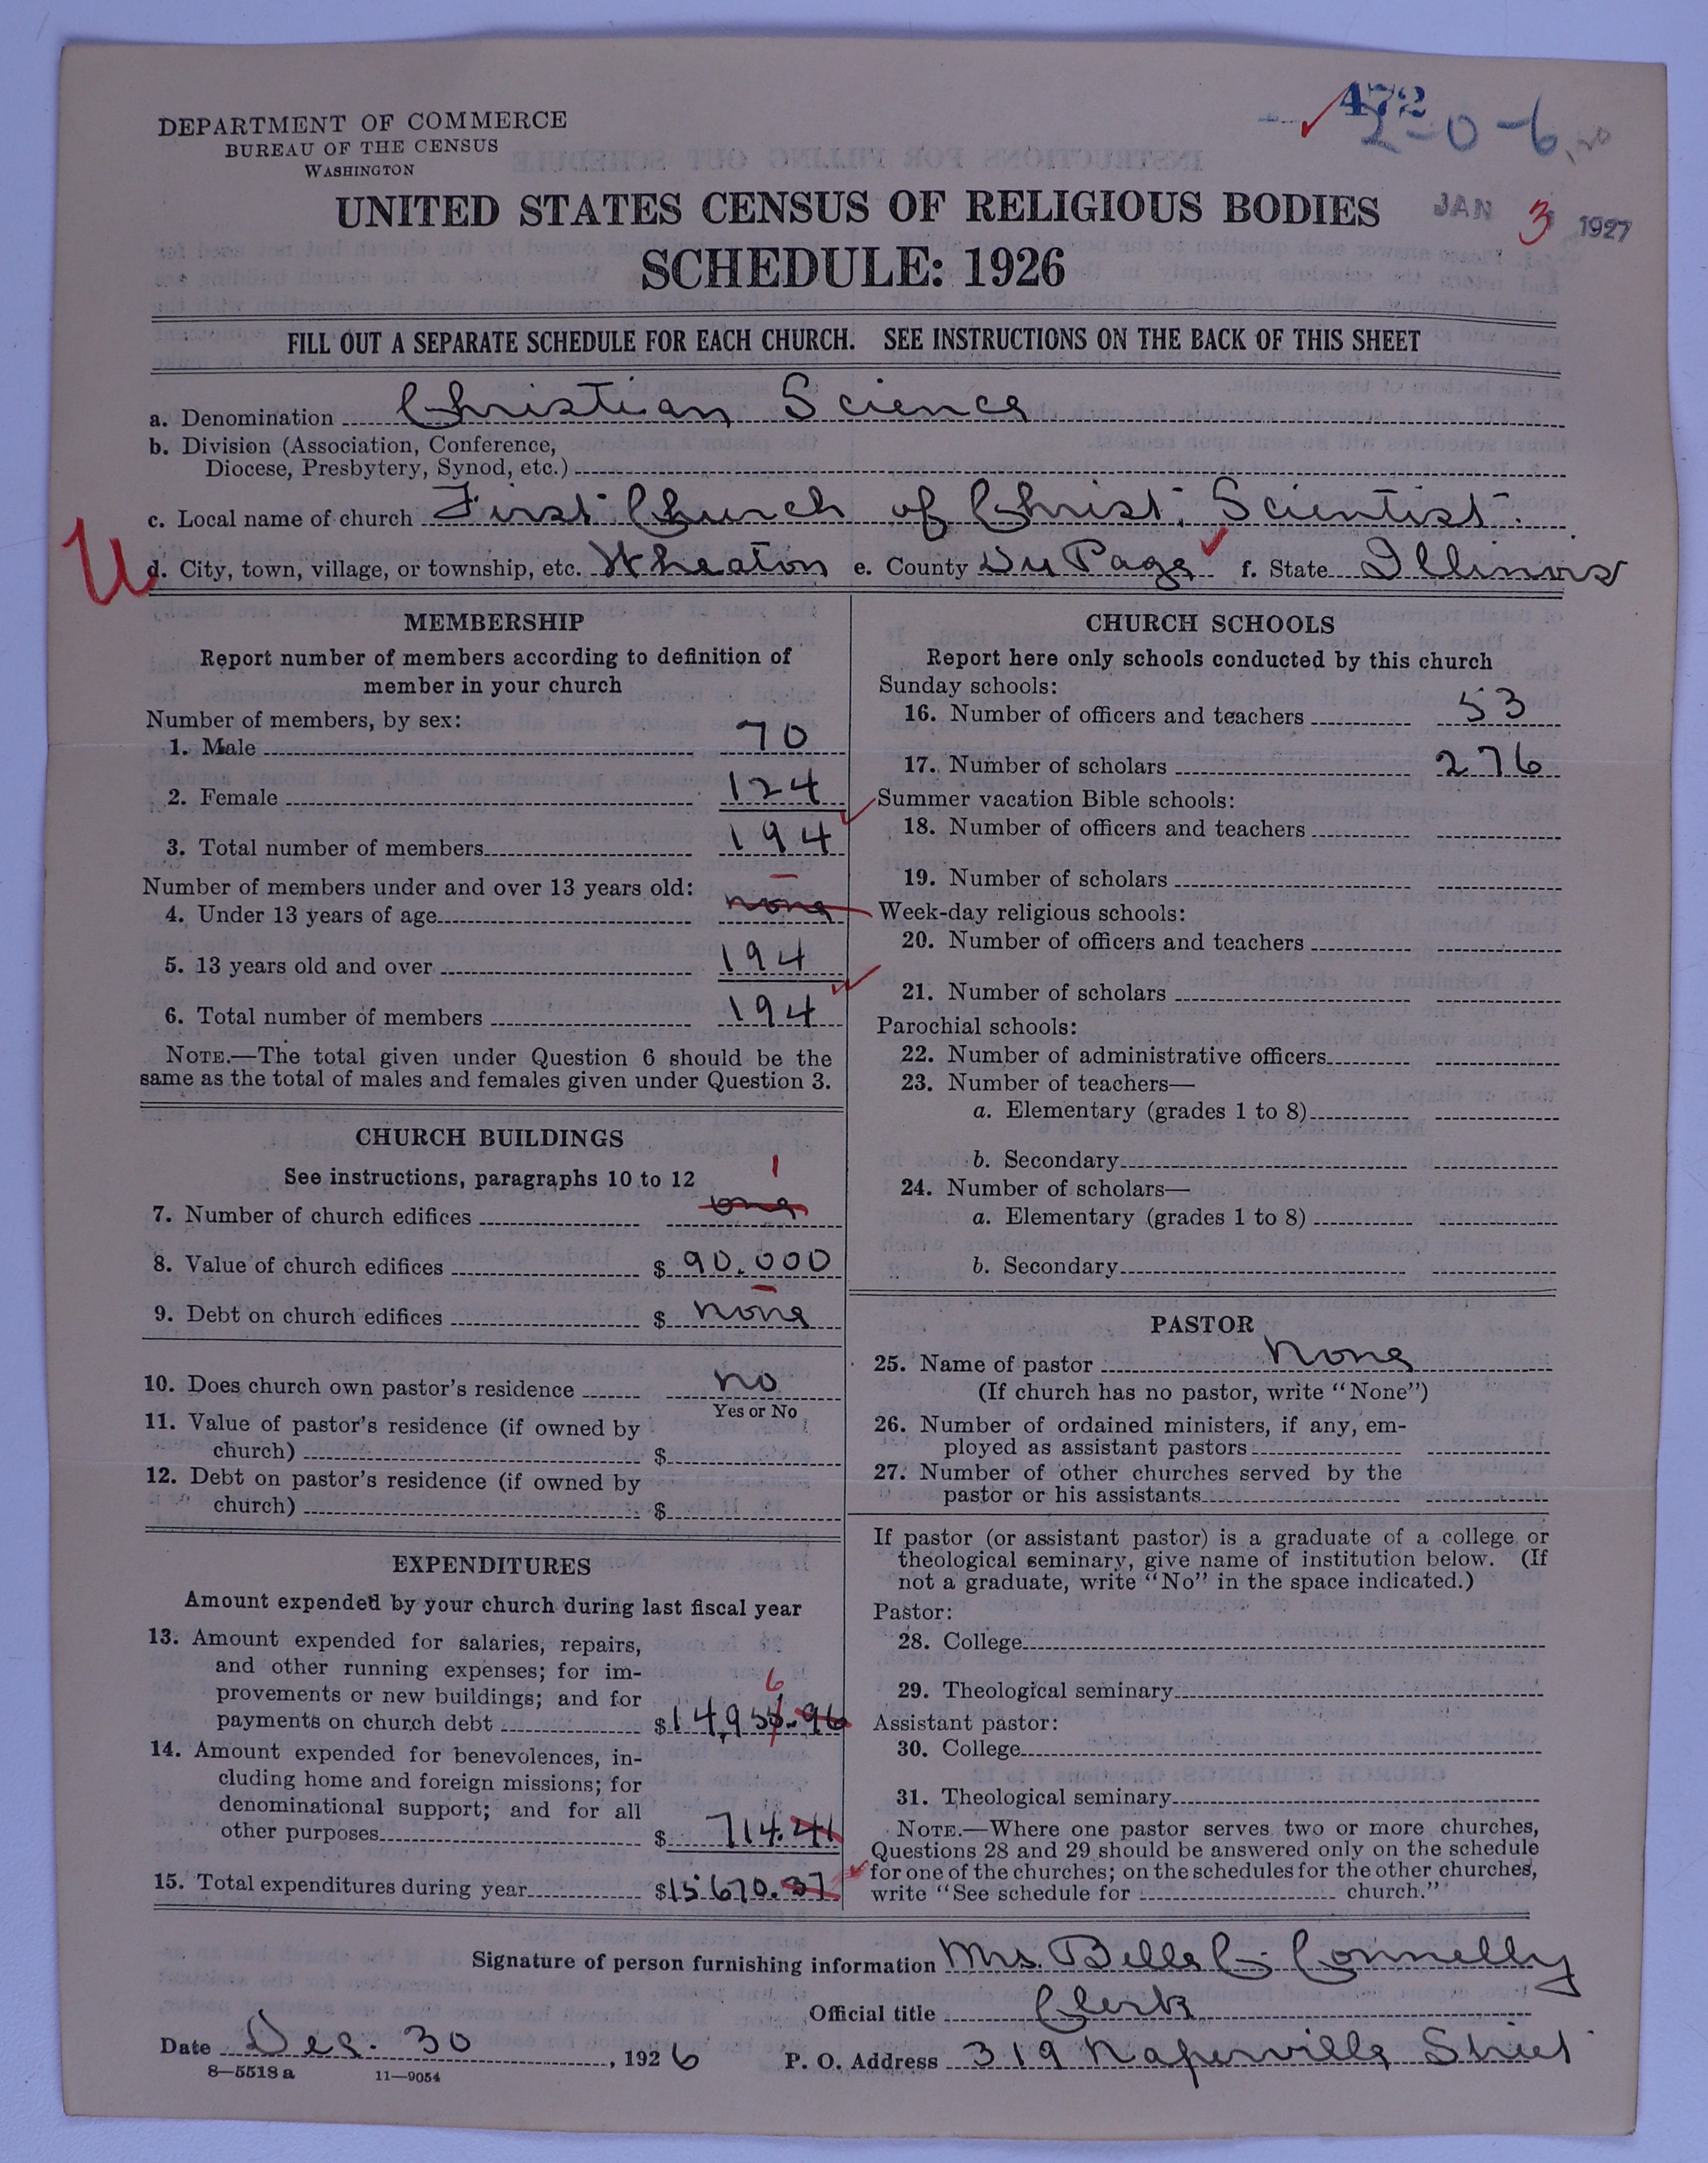 472
2-0-6
DEPARTMENT OF COMMERCE
BUREAU OF THE CENSUS
WASHINGTON
UNITED STATES CENSUS OF RELIGIOUS BODIES
JAN 3 1927
SCHEDULE: 1926
FILL OUT A SEPARATE SCHEDULE FOR EACH CHURCH. SEE INSTRUCTIONS ON THE BACK OF THIS SHEET
a. Denomination Christian Science
b. Division (Association, Conference,
Diocese, Presbytery, Synod, etc.)
c. Local name of church First Church of Christ, Scientist.
U
d. City, town, village, or township, etc. Wheaton e. County Du Page f. State Illinois
MEMBERSHIP
Report number of members according to definition of
member in your church
Number of members, by sex:
1. Male 70
2. Female 124
3. Total number of members 194
Number of members under and over 13 years old:
4. Under 13 years of age none
5. 13 years old and over 194
6. Total number of members 194
NOTE.—The total given under Question 6 should be the
same as the total of males and females given under Question 3.
CHURCH BUILDINGS
See instructions, paragraphs 10 to 12
1
7. Number of church edifices one
8. Value of church edifices $ 90.000
9. Debt on church edifices $ none
10. Does church own pastor's residence no
Yes or No
11. Value of pastor's residence (if owned by
church) $
12. Debt on pastor's residence (if owned by
church) $
EXPENDITURES
Amount expended by your church during last fiscal year
13. Amount expended for salaries, repairs,
and other running expenses; for im-
provements or new buildings; and for
6
payments on church debt $14,955.96
14. Amount expended for benevolences, in-
cluding home and foreign missions; for
denominational support; and for all
other purposes $ 714.41
15. Total expenditures during year $15670.37
CHURCH SCHOOLS
Report here only schools conducted by this church
Sunday schools:
16. Number of officers and teachers 53
17. Number of scholars 276
Summer vacation Bible schools:
18. Number of officers and teachers
19. Number of scholars
Week-day religious schools:
20. Number of officers and teachers
21. Number of scholars
Parochial schools:
22. Number of administrative officers
23. Number of teachers—
a. Elementary (grades 1 to 8)
b. Secondary
24. Number of scholars—
a. Elementary (grades 1 to 8)
b. Secondary
PASTOR
25. Name of pastor None
(If church has no pastor, write "None")
26. Number of ordained ministers, if any, em-
ployed as assistant pastors
27. Number of other churches served by the
pastor or his assistants
If pastor (or assistant pastor) is a graduate of a college or
theological seminary, give name of institution below. (If
not a graduate, write "No" in the space indicated.)
Pastor:
28. College
29. Theological seminary
Assistant pastor:
30. College
31. Theological seminary
NOTE.—Where one pastor serves two or more churches,
Questions 28 and 29 should be answered only on the schedule
for one of the churches; on the schedules for the other churches,
write "See schedule for church."
Signature of person furnishing information Mrs. Belle C. Connelly
Official title Clerk
Date Dec. 30, 1926 P. O. Address 319 Naperville Street
8—5518 a 11—9054